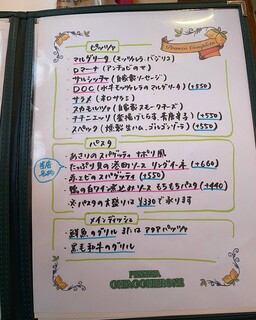 ピッツァ
・マルゲリータ (モッツァレラ・バジリコ)
・ロマーナ (アンチョビのせ)
・サルシッチャ (自家製ソーセージ)
・DOC (水牛モッツァレラのマルゲリータ) (+550)
・サラメ (辛口サラミ)
・スカモルツァ (自家製スモークチーズ)
・チチニエッリ (釜揚げしらす、青唐辛子) (+550)
・スペック (燻製生ハム、ゴルゴンゾーラ) (+550)
パスタ
・あさりのスパゲッティ ナポリ風
・たっぷり魚の漁師ソース リングイーネ (+660)
・赤エビのスパゲッティ (+550)
・鴨の白ワイン煮込みソース もちもちパスタ (+440)
※パスタの大盛りは ¥330で承ります
メインディッシュ
・鮮魚のグリル または アクアパッツァ
・黒毛和牛のグリル
PIZZERIA